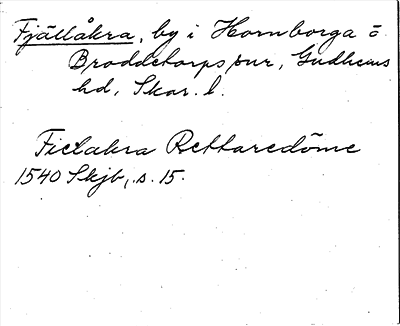 Fjällåkra, by i Hornborga o
Broddetorps snr, Gudhems
hd, Skar. l.
Fielakra Rettaredöme
1540 Skjb, s. 15.